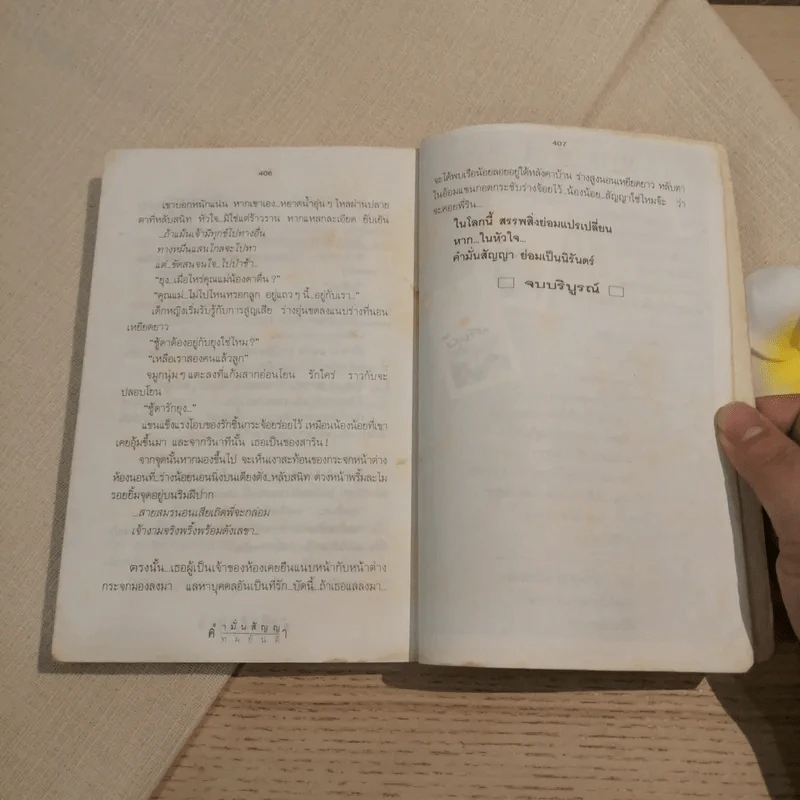 406
เขาบอกหนักแน่น หากเขาเอง..หยาดน้ำอุ่นๆ ไหลผ่านปลาย
ตาที่หลับสนิท หัวใจ..มิใช่แต่ร้าวราน หากแหลกละเอียด ยับเยิน
...ถ้าแม้นเจ้ามีทุกข์ไปทางอื่น
ทางหมื่นแสนไกลจะไปหา
แต่..ขัดสนจนใจ..ไปป่าช้า..
“ยุง...เมื่อไหร่คุณแม่น้องคาตื่น ?”
“คุณแม่...ไม่ไปไหนหรอกลูก อยู่แถวๆ นี้...อยู่กับเรา...”
เด็กหญิงเริ่มรับรู้กับการสูญเสีย ร่างอุ่นขดลงแนบร่างที่นอน
เหยียดยาว
“ซู้ดาต้องอยู่กับยุงใช่ไหม ?”
“เหลือเราสองคนแล้วลูก”
จมูกนุ่มๆ แตะลงที่แก้มสากอ่อนโยน รักใคร่ ราวกับจะ
ปลอบโยน
“ซู้ดารักยุง...”
แขนแข็งแรงโอบของรักชิ้นกระจ้อยร่อยไว้ เหมือนน้องน้อยที่เขา
เคยอุ้มขึ้นมา และจากวินาทีนั้น เธอเป็นของสาริน !
จากจุดนั้นหากมองขึ้นไป จะเห็นเงาสะท้อนของกระจกหน้าต่าง
ห้องนอนที่..ร่างน้อยนอนนิ่งบนเตียงตั่ง..หลับสนิท ดวงหน้าพริ้มละไม
รอยยิ้มจุดอยู่บนริมฝีปาก
...สายสมรนอนเสียเถิดพี่จะกล่อม
เจ้างามจริงพริ้งพร้อมดังเลขา...
ตรงนั้น...เธอผู้เป็นเจ้าของห้องเคยยืนแนบหน้ากับหน้าต่าง
กระจกมองลงมา แลหาบุคคลอันเป็นที่รัก..บัดนี้..ถ้าเธอแลลงมา...
คำมั่นสัญญา
ทมยันตี
407
จะได้พบเรือน้อยลอยอยู่ใต้หลังคาบ้าน ร่างสูงนอนเหยียดยาว หลับตา
ในอ้อมแขนกอดกระชับร่างจ้อยไว้ น้องน้อย...สัญญาใช่ไหมจ๊ะ ว่า
จะคอยพี่ริน...
ในโลกนี้ สรรพสิ่งย่อมแปรเปลี่ยน
หาก...ในหัวใจ...
คำมั่นสัญญา ย่อมเป็นนิรันดร์
จบบริบูรณ์